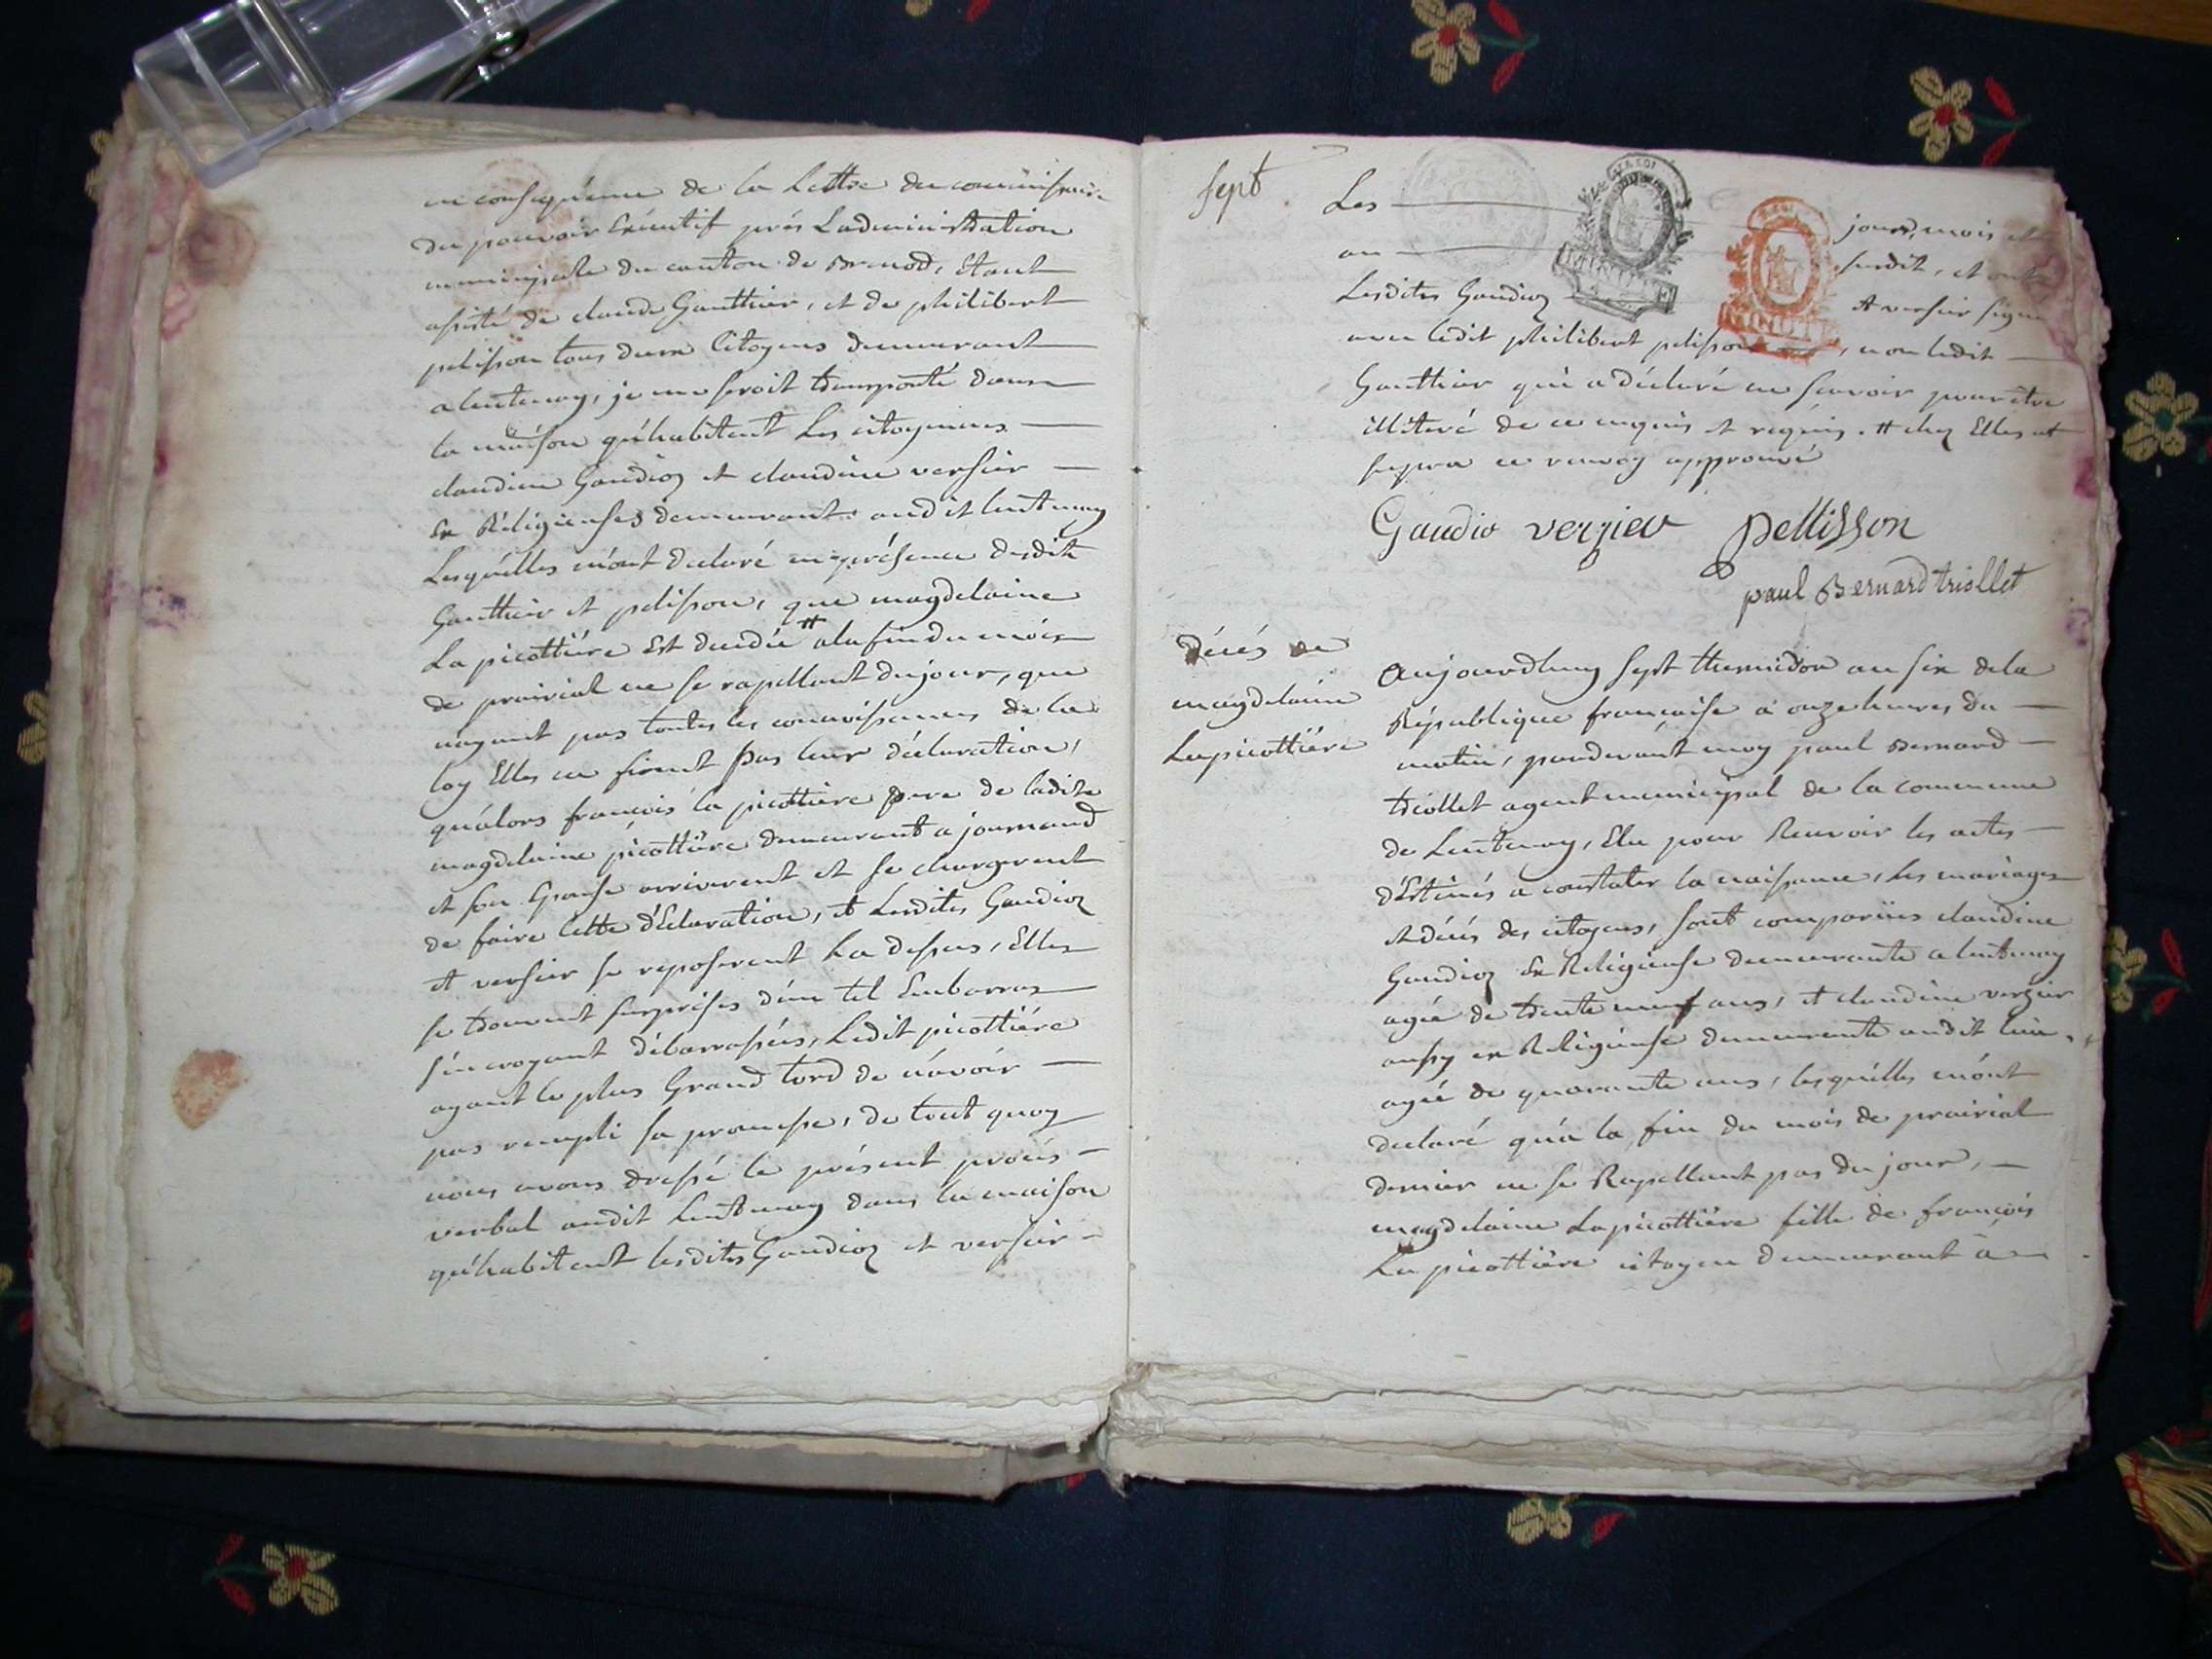 en conséquence de la Lettre du commissaire
du pouvoir Exécutif près Ladministration
municipale du canton de Brenod, Etant
assisté de claude Gauthier, et de philibert
pelisson tous deux Citoyens demeurant
a lentenay, je me seroit transporté dans
la maison qu'habitent Les citoyennes
claudine Gaudioz et claudine versier
Ex Réligieuses demeurant audit lentenay
Lesquélles m'ont declaré en présence desdits
Gauthier et pelisson, que magdelaine
La picottiére Est decedée # ala fin du móis
de prairial ne se rapellant du jour, que
nayant pas toutes les connoissances de la
loy Elles ne firent pas leur déclaration,
qu'alors françois la picottiére pere de ladite
magdelaine picottiére demeurant a journand
et son Epouse arriverent et se chargerent
de faire cette déclaration, et Lesdites Gaudioz
et versier se reposerent La dessus, Elles
se trouvent surprises d'un tel Embarras
s'en croyant débarrassées, Ledit picottiére
ayant le plus Grand tord de n'avoir
pas rempli sa promesse, de tout quoy
nous avons dressé le présent procés
verbal audit Lentenay dans la maison
qu'habitent lesdites Gaudioz et versier
sept
Les jour, mois et
an susdit, et ont
Lesdites Gaudioz et versier signé
avec ledit philibert pelisson, non ledit
Gauthier qui a déclaré ne scavoir pour être
illiteré de ce enquis et requis. # chez Elles ut
supra ce renvoy approuvé
Gaudio verzier pellisson
paul Bernard triollet
Décés de
magdelaine
Lapicottiére
aujourdhuy sept thermidor an six dela
République françoise à onze heures du
matin, pardevant moy paul Bernard
triollet agent municipal de la commune
de Lentenay, Elu pour Recevoir les actes
d'Estinés a constater la naissance, les mariages
et décés des citoyens, sont comparües claudine
Gaudioz Ex Religieuse demeurante a lentenay
agée de trente neuf ans, et claudine verzier
aussy ex Religieuse demeurante audit lieu,
agée de quarante ans, lesquélles m'ónt
declaré qu'a la fin du mois de prairial
dernier ne se Rapellant pas du jour,
magdelaine Lapicottiére fille de françois
La picottiére citoyen demeurant à